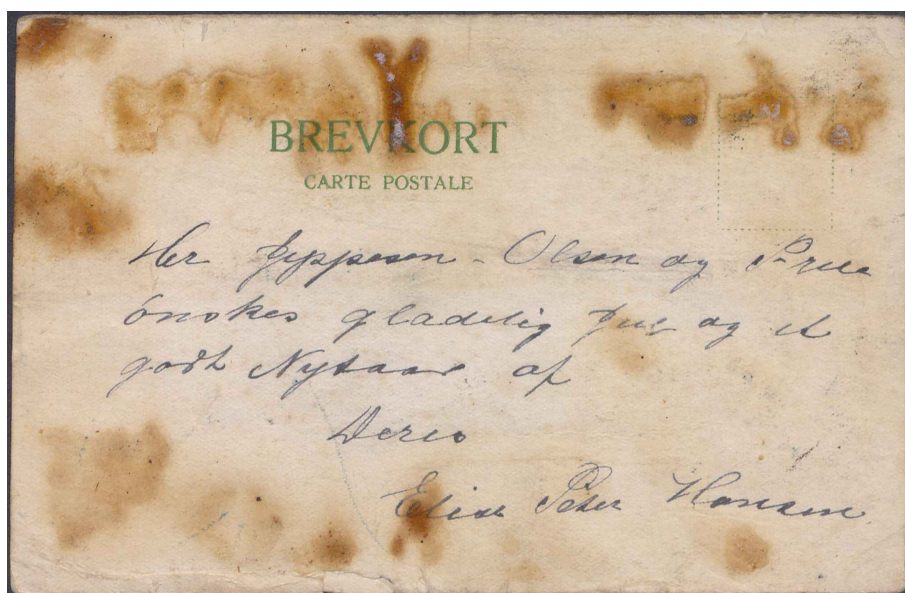 BREVKORT
CARTE POSTALE
Her Jeppesen - Olsen og Frue
ønskes gladelig Jul og et
godt Nytaar af
Deres
Elise Peter Hansen